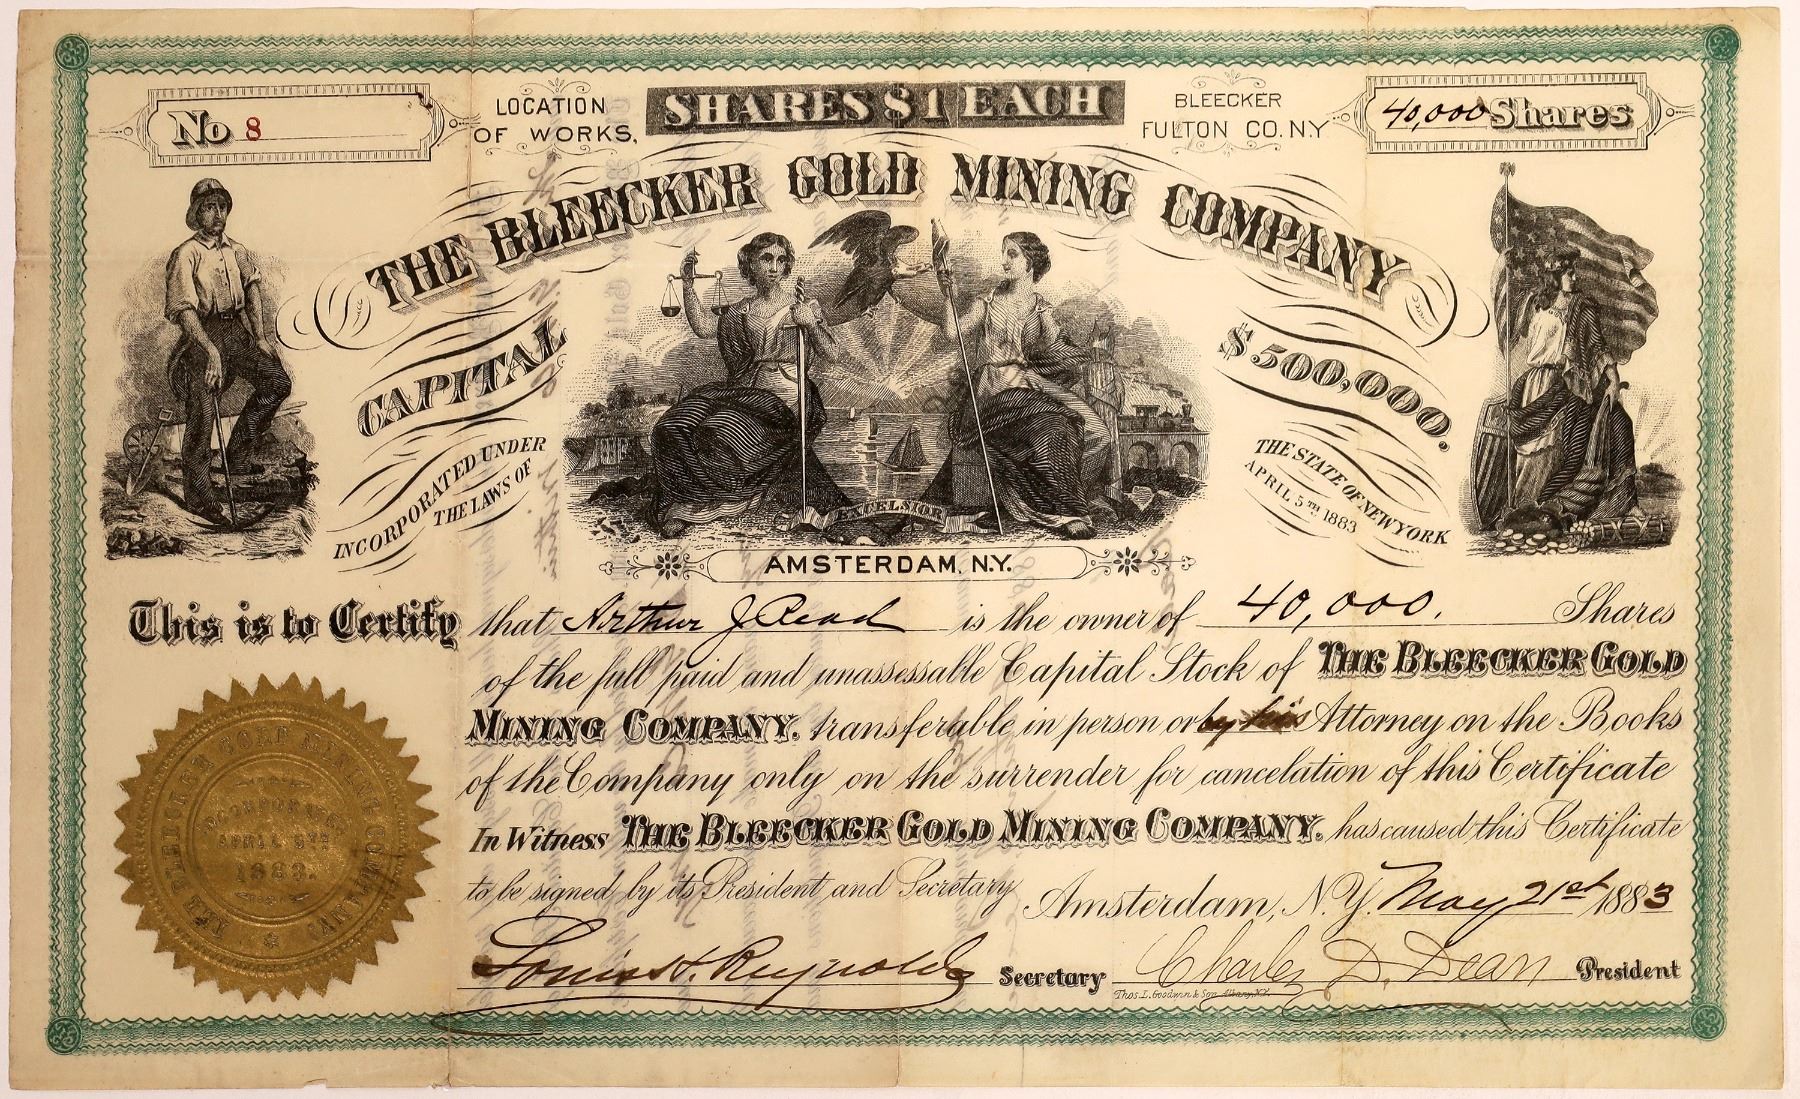 No 8
LOCATION OF WORKS,
SHARES $1 EACH
BLEECKER FULTON CO. N.Y
40,000 Shares
THE BLEECKER GOLD MINING COMPANY
CAPITAL $500,000.
INCORPORATED UNDER THE LAWS OF
THE STATE OF NEW YORK
APRIL 5TH 1883
EXCELSIOR
AMSTERDAM, N.Y.
This is to Certify that Arthur J Read is the owner of 40,000. Shares
of the full paid and unassessable Capital Stock of THE BLEECKER GOLD
MINING COMPANY. transferable in person or by his Attorney on the Books
of the Company only on the surrender for cancelation of this Certificate
In Witness THE BLEECKER GOLD MINING COMPANY. has caused this Certificate
to be signed by its President and Secretary Amsterdam, N.Y. May 21st 1883
Louis H. Reynolds Secretary Charles D. Dean President
Thos. L. Goodwin & Son Albany, N.Y.
THE BLEECKER GOLD MINING COMPANY
INCORPORATED
APRIL 5TH
1883.